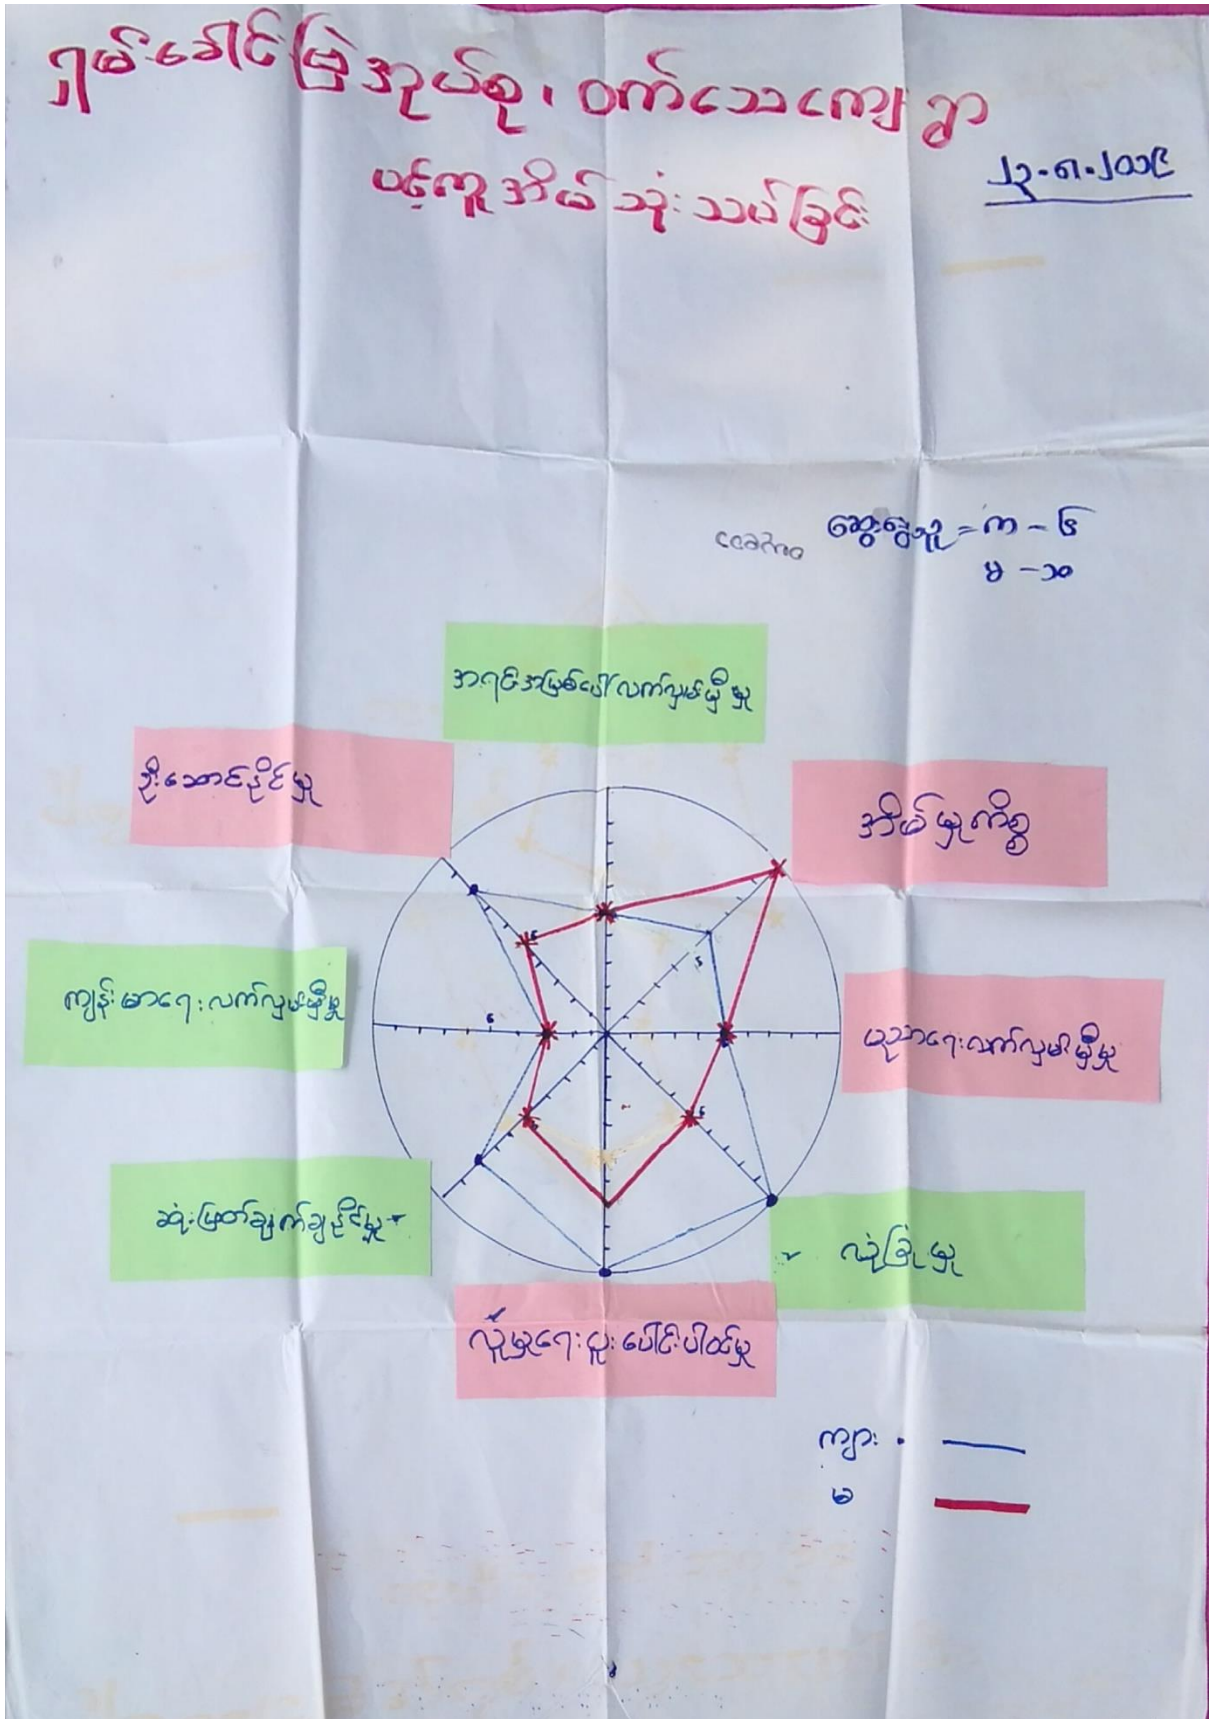 ရှမ်းခေါင်မြဲအုပ်စု၊ ဝက်သေကျေးရွာ
ပင့်ကူအိမ်သုံးသပ်ခြင်း
၂၃-၈-၂၀၁၉
ဆွေးနွေးသူ = က - ၆
မ - ၁၀
အရင်းအမြစ်ပေါ်လက်လှမ်းမှီမှု
ဦးဆောင်နိုင်မှု
အိမ်မှုကိစ္စ
ကျန်းမာရေးလက်လှမ်းမှီမှု
ပညာရေးလက်လှမ်းမှီမှု
ဆုံးဖြတ်ချက်ချနိုင်မှု
လုံခြုံမှု
လူမှုရေးပူးပေါင်းပါဝင်မှု
ကျား
မ